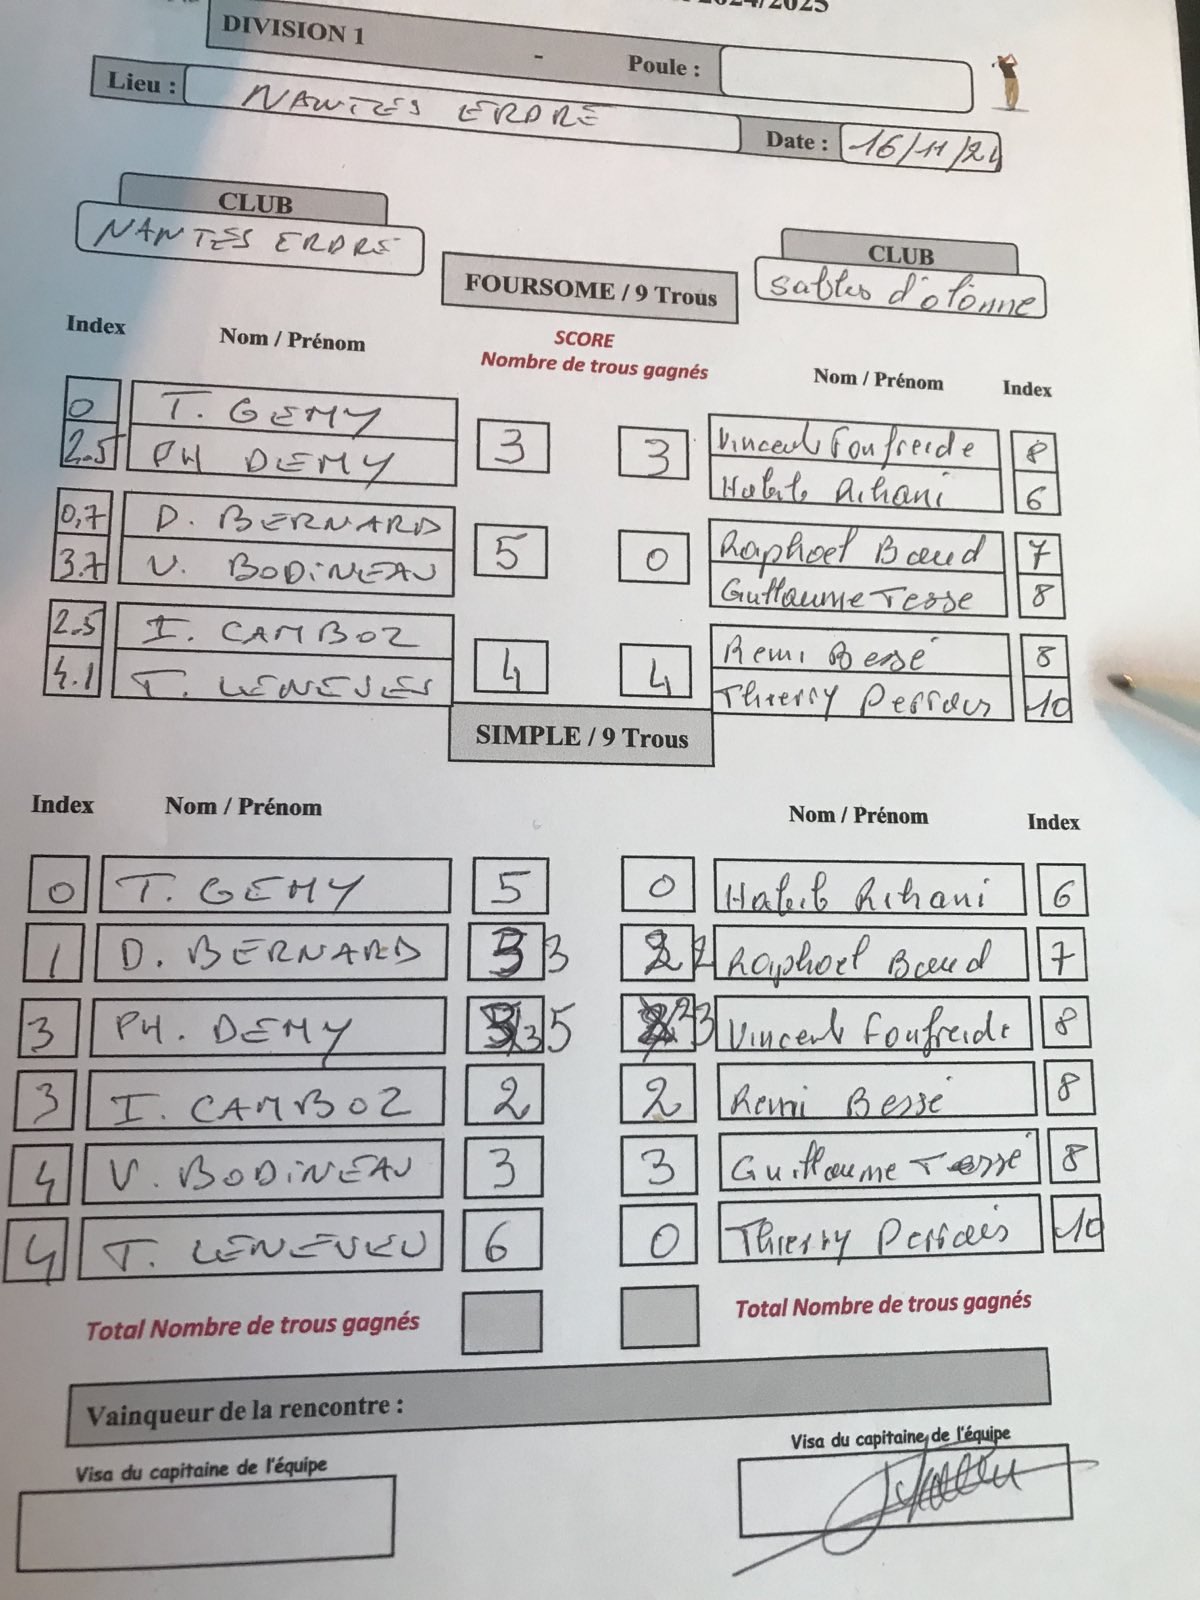 2024/2025
DIVISION 1 - Poule :
Lieu : NANTES ERDRE Date : 16/11/24
CLUB CLUB
NANTES ERDRE sables d'olonne
FOURSOME / 9 Trous
Index Nom / Prénom SCORE Nom / Prénom Index
Nombre de trous gagnés
0 T. GEMY 3 3 Vincent Foufreide 8
2.5 PH DEMY Habib Rihani 6
0,7 D. BERNARD 5 0 Raphael Baud 7
3.7 V. BODINEAU Guillaume Tesse 8
2.5 I. CAMBOZ 4 4 Remi Bessé 8
4.1 T. LENEVEU Thierry Perrais 10
SIMPLE / 9 Trous
Index Nom / Prénom Nom / Prénom Index
0 T. GEMY 5 0 Habib Rihani 6
1 D. BERNARD 3 3 2 2 Raphael Baud 7
3 PH. DEMY 5 3 Vincent Foufreide 8
3 I. CAMBOZ 2 2 Remi Bessé 8
4 V. BODINEAU 3 3 Guillaume Tessé 8
4 T. LENEVEU 6 0 Thierry Perrais 10
Total Nombre de trous gagnés Total Nombre de trous gagnés
Vainqueur de la rencontre :
Visa du capitaine de l'équipe Visa du capitaine de l'équipe